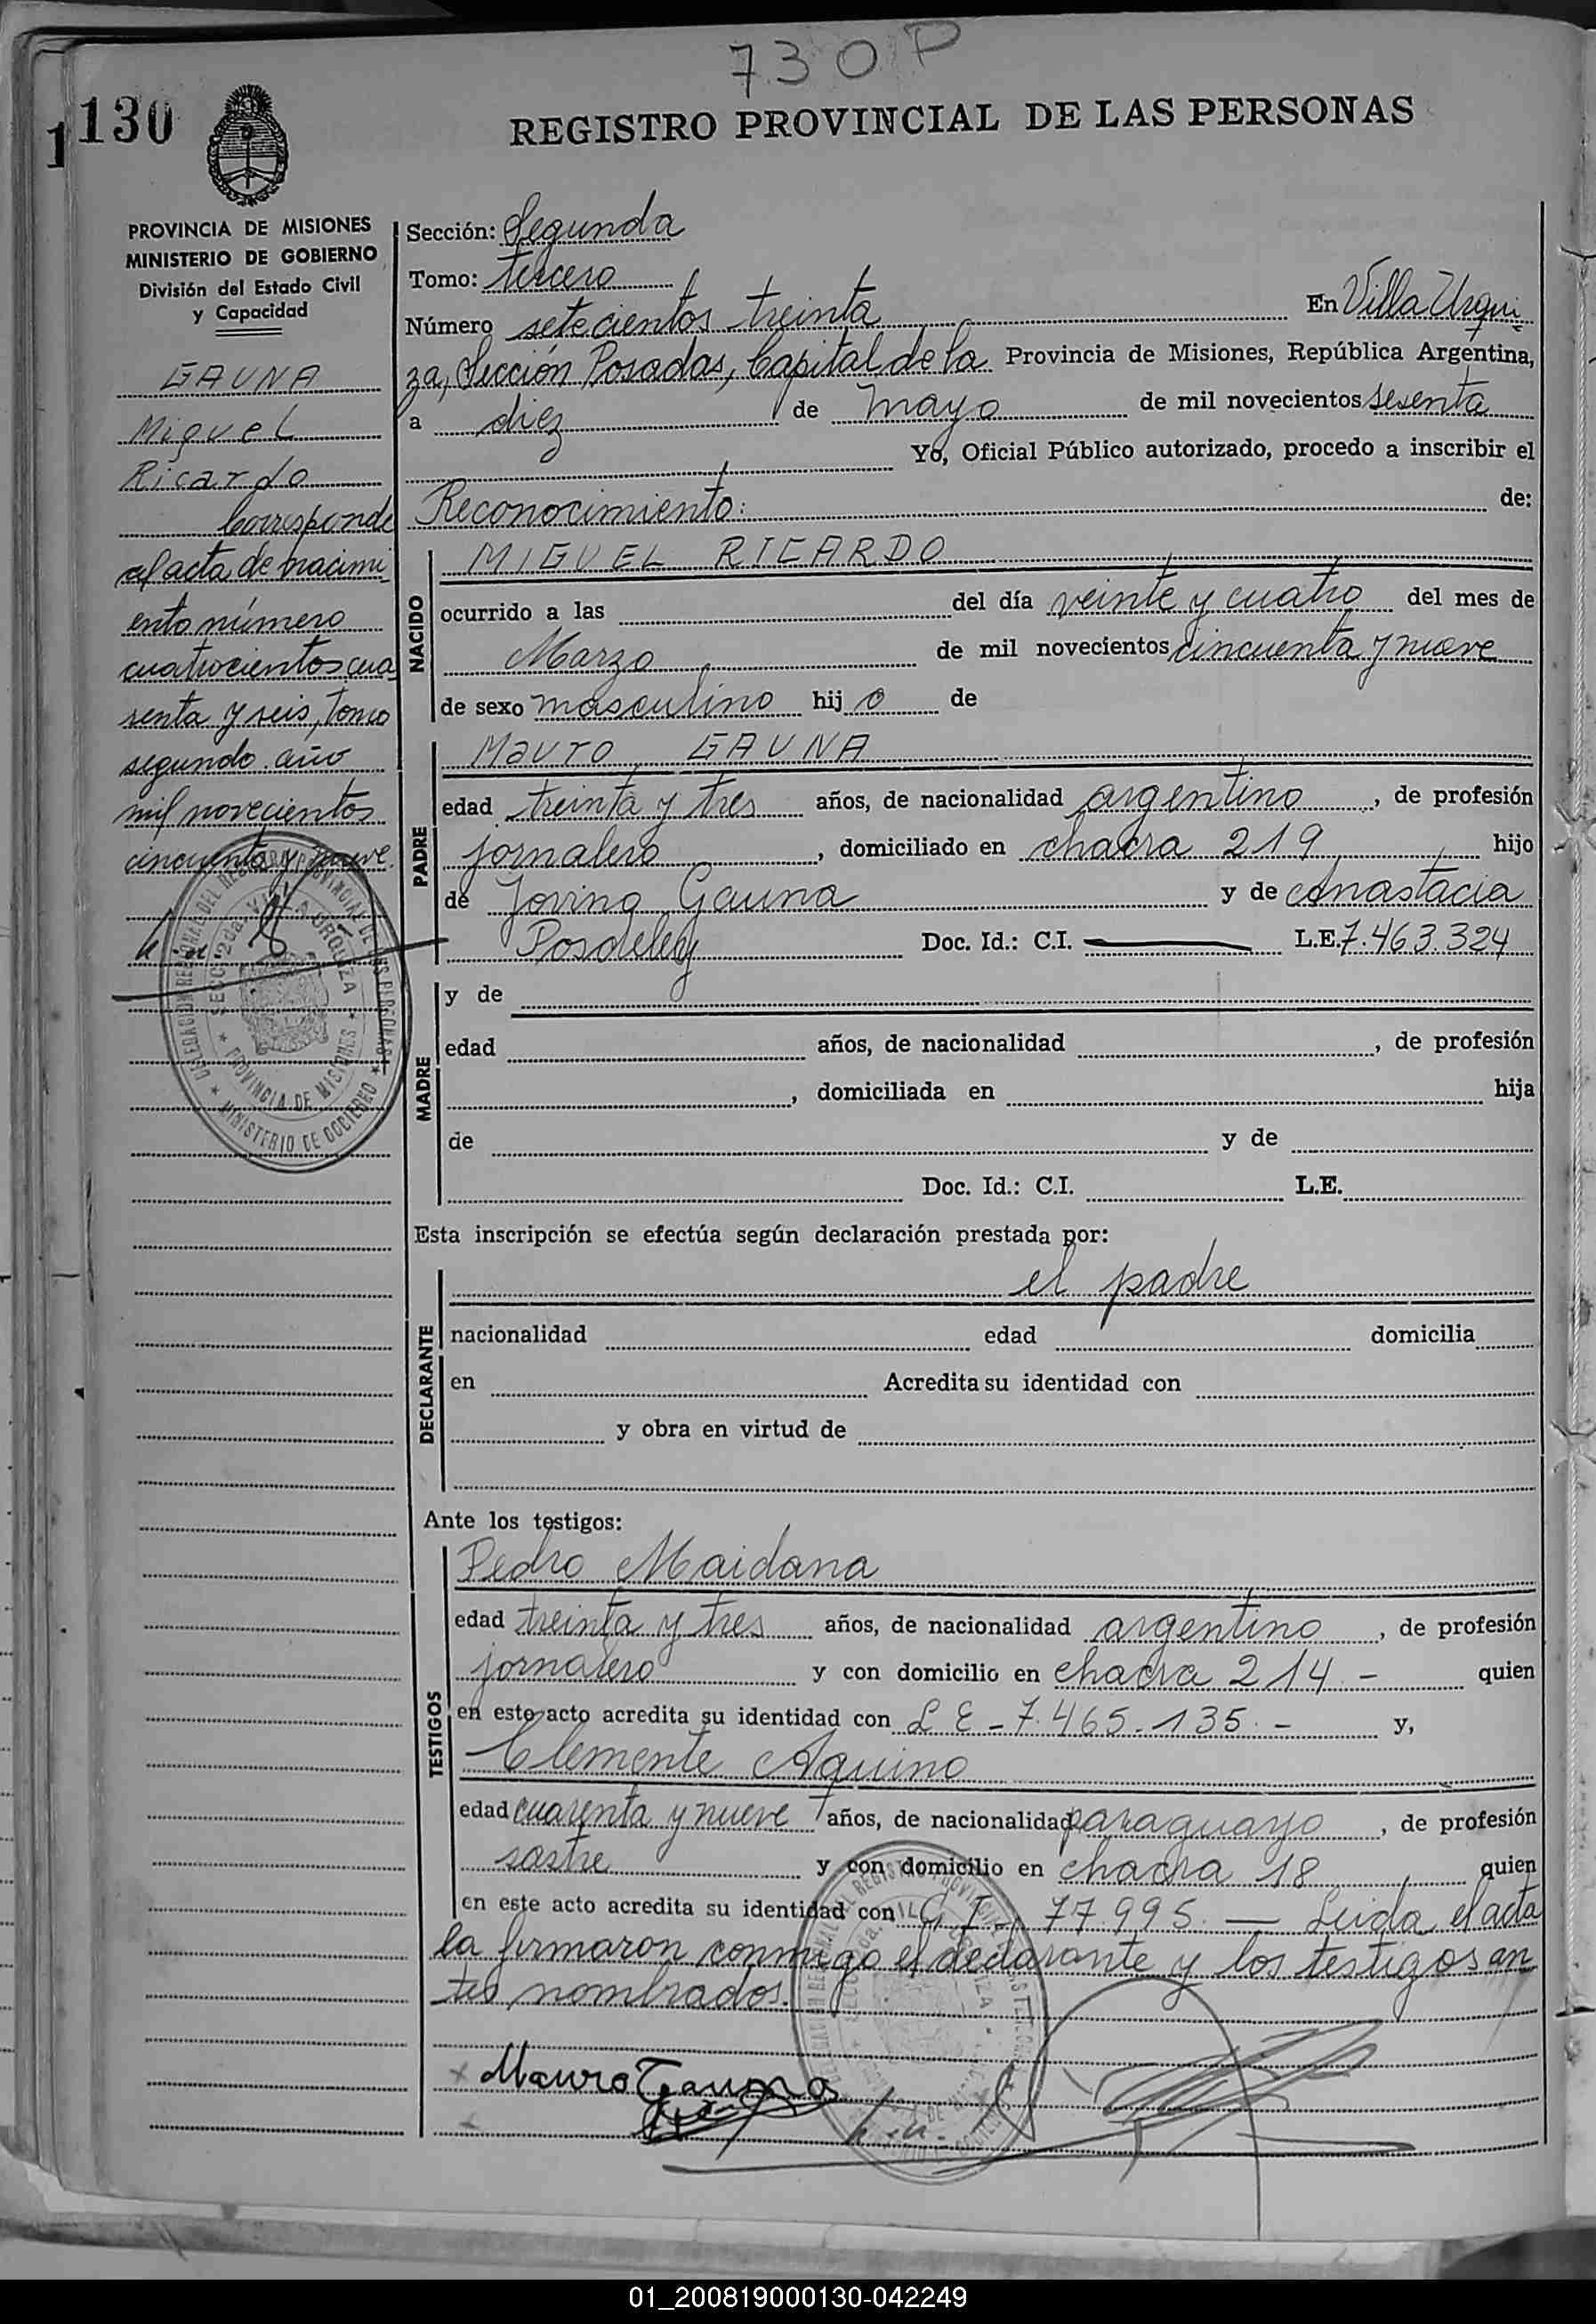 730 P
1 130
REGISTRO PROVINCIAL DE LAS PERSONAS
PROVINCIA DE MISIONES
MINISTERIO DE GOBIERNO
División del Estado Civil
y Capacidad
GAUNA
Miguel
Ricardo
Corresponde
al acta de nacimi
ento número
cuatrocientos cua
renta y seis, Tomo
segundo año
mil novecientos
cincuenta y nueve.
DELEGACION REGIONAL DEL REGISTRO PROVINCIAL DE LAS PERSONAS
SECC. 2da. VILLA URQUIZA
PROVINCIA DE MISIONES
MINISTERIO DE GOBIERNO
Sección: Segunda
Tomo: tercero
Número setecientos treinta En Villa Urqui
za, Sección Posadas, Capital de la Provincia de Misiones, República Argentina,
a diez de mayo de mil novecientos sesenta
Yo, Oficial Público autorizado, procedo a inscribir el
Reconocimiento: de:
NACIDO
MIGUEL RICARDO
ocurrido a las del día veinte y cuatro del mes de
Marzo de mil novecientos cincuenta y nueve
de sexo masculino hijo de
PADRE
Mauro GAUNA
edad treinta y tres años, de nacionalidad argentino, de profesión
jornalero, domiciliado en chacra 219 hijo
de Jovino Gauna y de Anastacia
Posdeley Doc. Id.: C.I. — L.E. 7.463.324
MADRE
y de
edad años, de nacionalidad , de profesión
, domiciliada en hija
de y de
Doc. Id.: C.I. L.E.
Esta inscripción se efectúa según declaración prestada por:
DECLARANTE
el padre
nacionalidad edad domicilia
en Acredita su identidad con
y obra en virtud de
Ante los testigos:
TESTIGOS
Pedro Maidana
edad treinta y tres años, de nacionalidad argentino, de profesión
jornalero y con domicilio en chacra 214 - quien
en este acto acredita su identidad con L E - 7.465.135. - y,
Clemente Aquino
edad cuarenta y nueve años, de nacionalidad paraguayo, de profesión
sastre y con domicilio en chacra 18 quien
en este acto acredita su identidad con C I - 77.995. — Leida el acta
la firmaron conmigo el declarante y los testigos an
tes nombrados.
Mauro Gauna
01_200819000130-042249